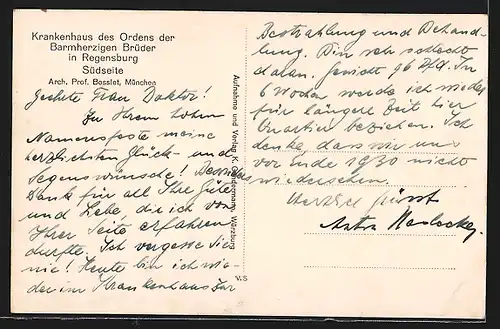 Krankenhaus des Ordens der
Barmherzigen Brüder
in Regensburg
Südseite
Arch. Prof. Bosslet, München
Geehrte Frau Doktor!
Zu Ihrem hohen
Namensfeste meine
herzlichsten Glück- und
Segenswünsche! Besonders
Dank für all Ihre Güte
und Liebe, die ich von
Ihrer Seite erfahren
durfte. Ich vergesse Sie
nie! Heute bin ich wie-
der im Krankenhaus zur
Aufnahme und Verlag K. Gundermann, Würzburg
V/S
Bestrahlung und Behand-
lung. Bin sehr schlecht
daran. Gewicht 96 Pfd. In
6 Wochen werde ich wieder
für längere Zeit hier
Quartier beziehen. Ich
denke, dass wir uns
vor Ende 1930 nicht
wiedersehen.
Herzlich grüsst